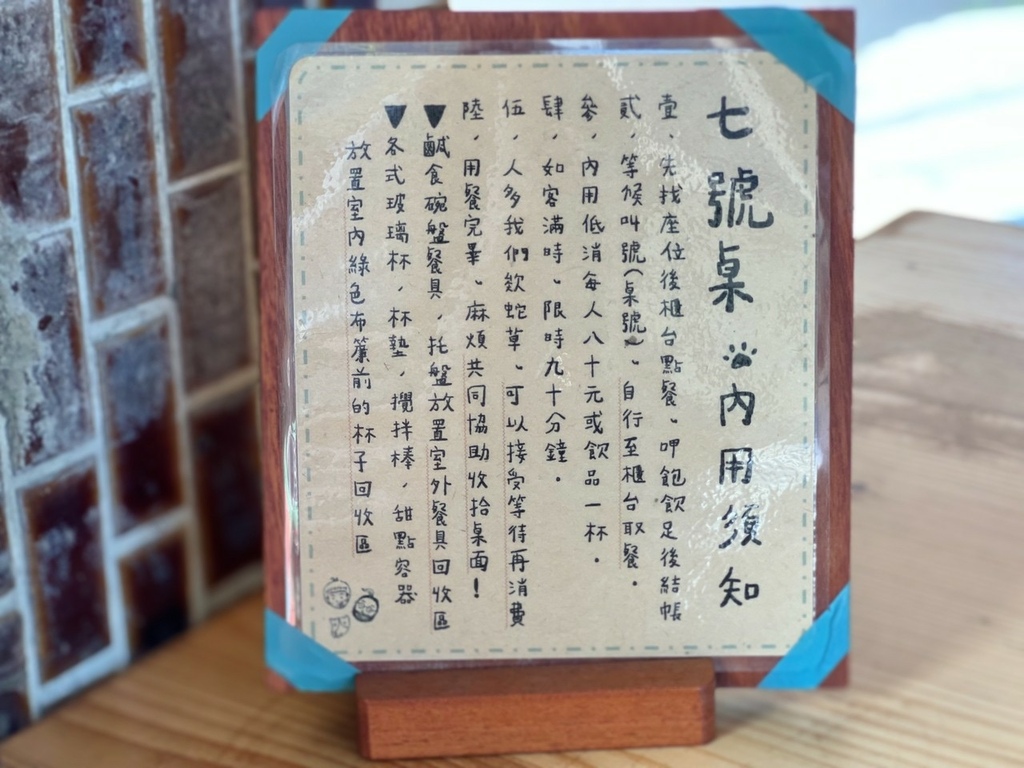 七號桌 內用須知
壹、先找座位後櫃台點餐、呷飽飲足後結帳
貳，等候叫號(桌號)、自行至櫃台取餐．
參，內用低消每人八十元或飲品一杯．
肆，如客滿時、限時九十分鐘．
伍，人多我們欸蛇草、可以接受等待再消費
陸，用餐完畢、麻煩共同協助收拾桌面！
▼鹹食碗盤餐具，托盤放置室外餐具回收區
▼各式玻璃杯，杯墊，攪拌棒，甜點容器
放置室內綠色布簾前的杯子回收區